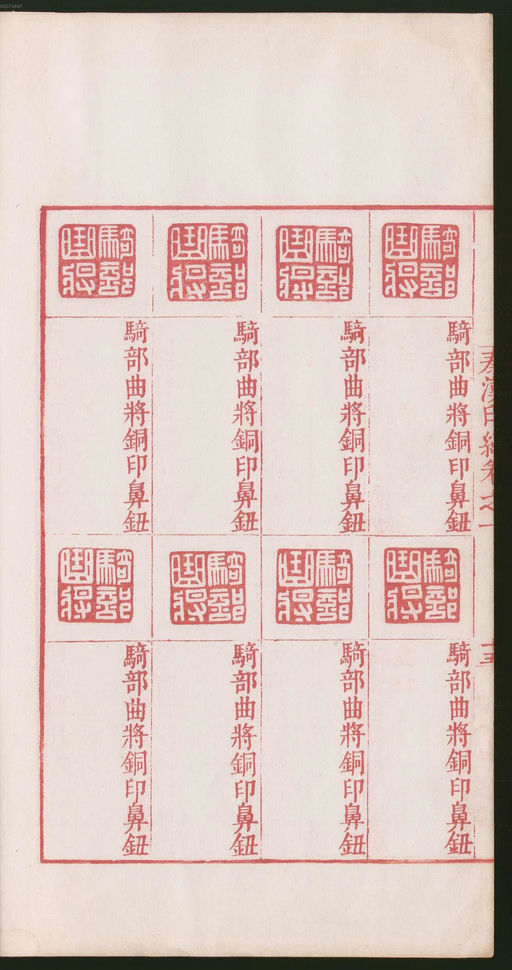 00073447
秦漢印統卷之一
十五
騎部曲將
騎部曲將銅印鼻鈕
騎部曲將
騎部曲將銅印鼻鈕
騎部曲將
騎部曲將銅印鼻鈕
騎部曲將
騎部曲將銅印鼻鈕
騎部曲將
騎部曲將銅印鼻鈕
騎部曲將
騎部曲將銅印鼻鈕
騎部曲將
騎部曲將銅印鼻鈕
騎部曲將
騎部曲將銅印鼻鈕